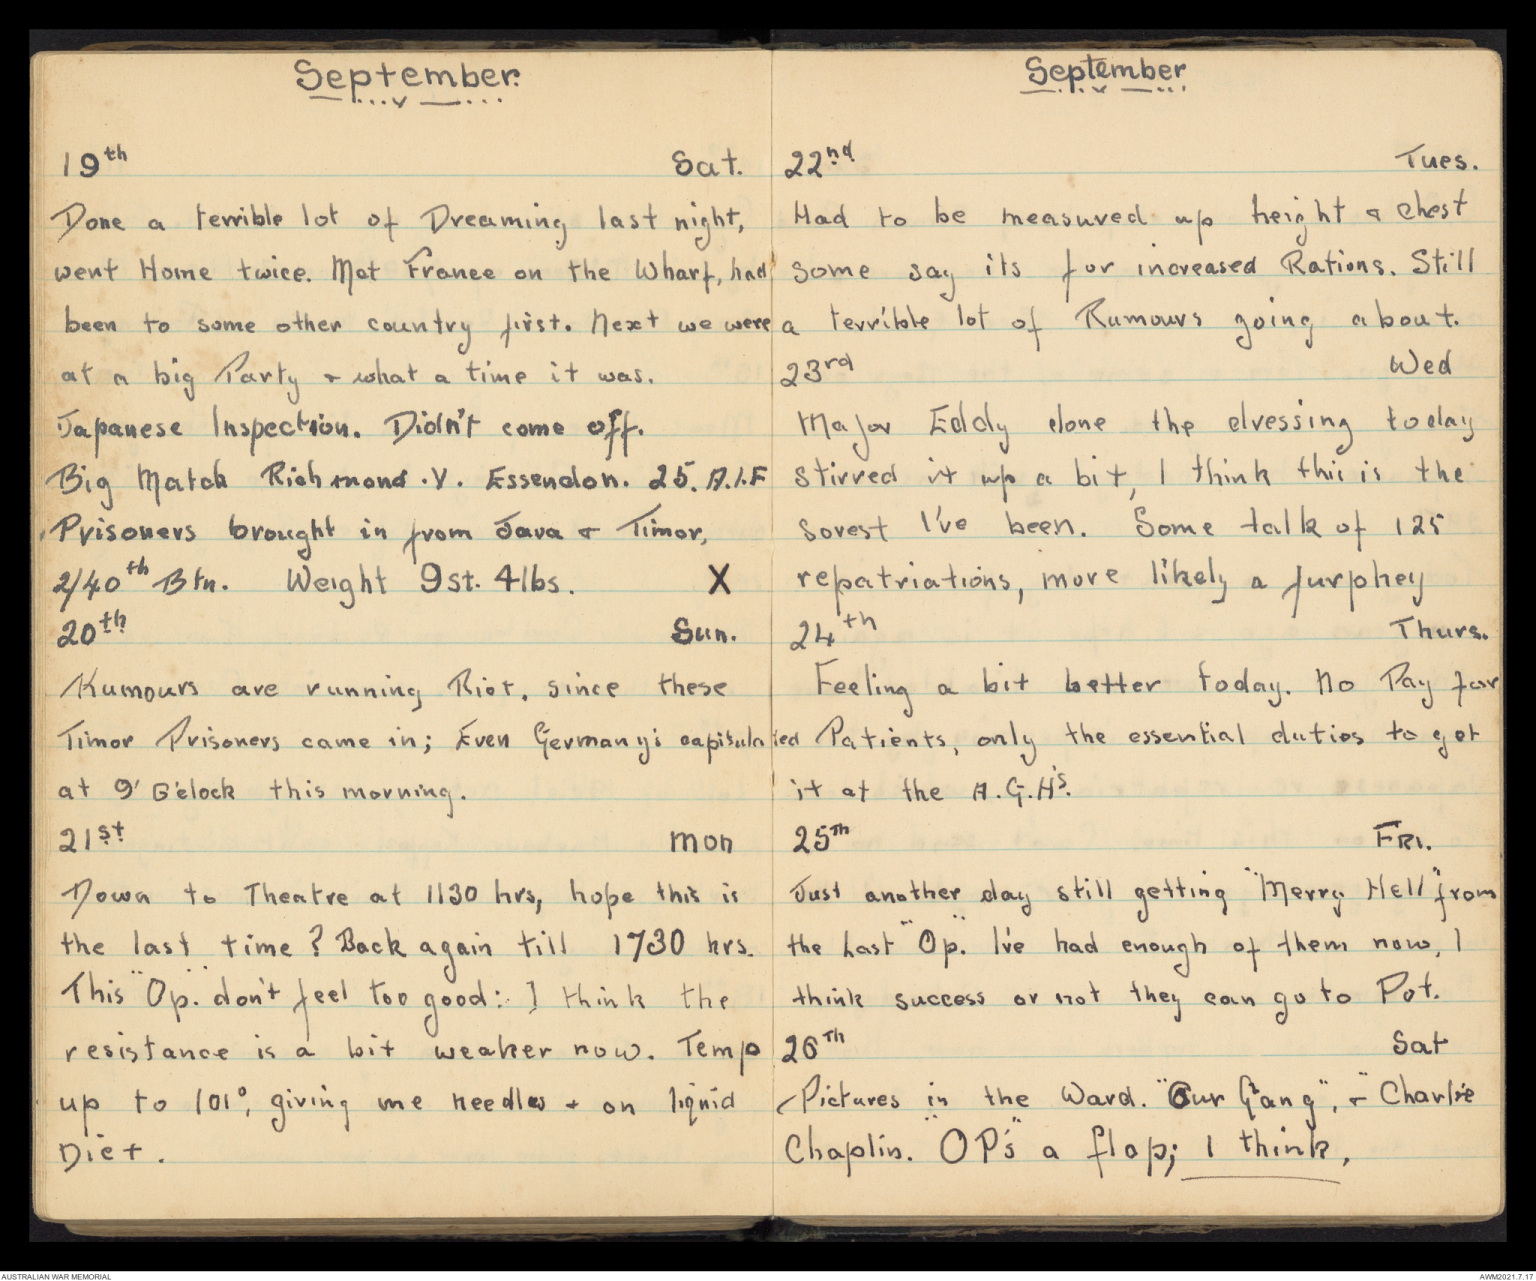 September.
19th Sat.
Done a terrible lot of Dreaming last night,
went Home twice. Met France on the Wharf, had
been to some other country first. Next we were
at a big Party & what a time it was.
Japanese Inspection. Didn't come off.
Big Match Richmond .V. Essendon. 25. A.I.F
Prisoners brought in from Java & Timor,
2/40th Btn. Weight 9st. 4lbs. X
20th Sun.
Rumours are running Riot, since these
Timor Prisoners came in; Even Germany's capitulated
at 9' O'clock this morning.
21st Mon
Down to Theatre at 1130 hrs, hope this is
the last time? Back again till 1730 hrs.
This "Op." don't feel too good: I think the
resistance is a bit weaker now. Temp
up to 101°, giving me needles & on liquid
Diet.
September
22nd Tues.
Had to be measured up height & chest
some say its for increased Rations. Still
a terrible lot of Rumours going about.
23rd Wed
Major Eddy done the dressing today
stirred it up a bit, I think this is the
sorest I've been. Some talk of 125
repatriations, more likely a furphey
24th Thurs.
Feeling a bit better today. No Pay for
Patients, only the essential duties to get
it at the A.G.H's.
25th FRI.
Just another day still getting "Merry Hell" from
the Last "Op." I've had enough of them now, I
think success or not they can go to Pot.
26th Sat
Pictures in the Ward. "Our Gang", & "Charlie
Chaplin. "OP's" a flop; I think,
AUSTRALIAN WAR MEMORIAL
AWM2021.7.17